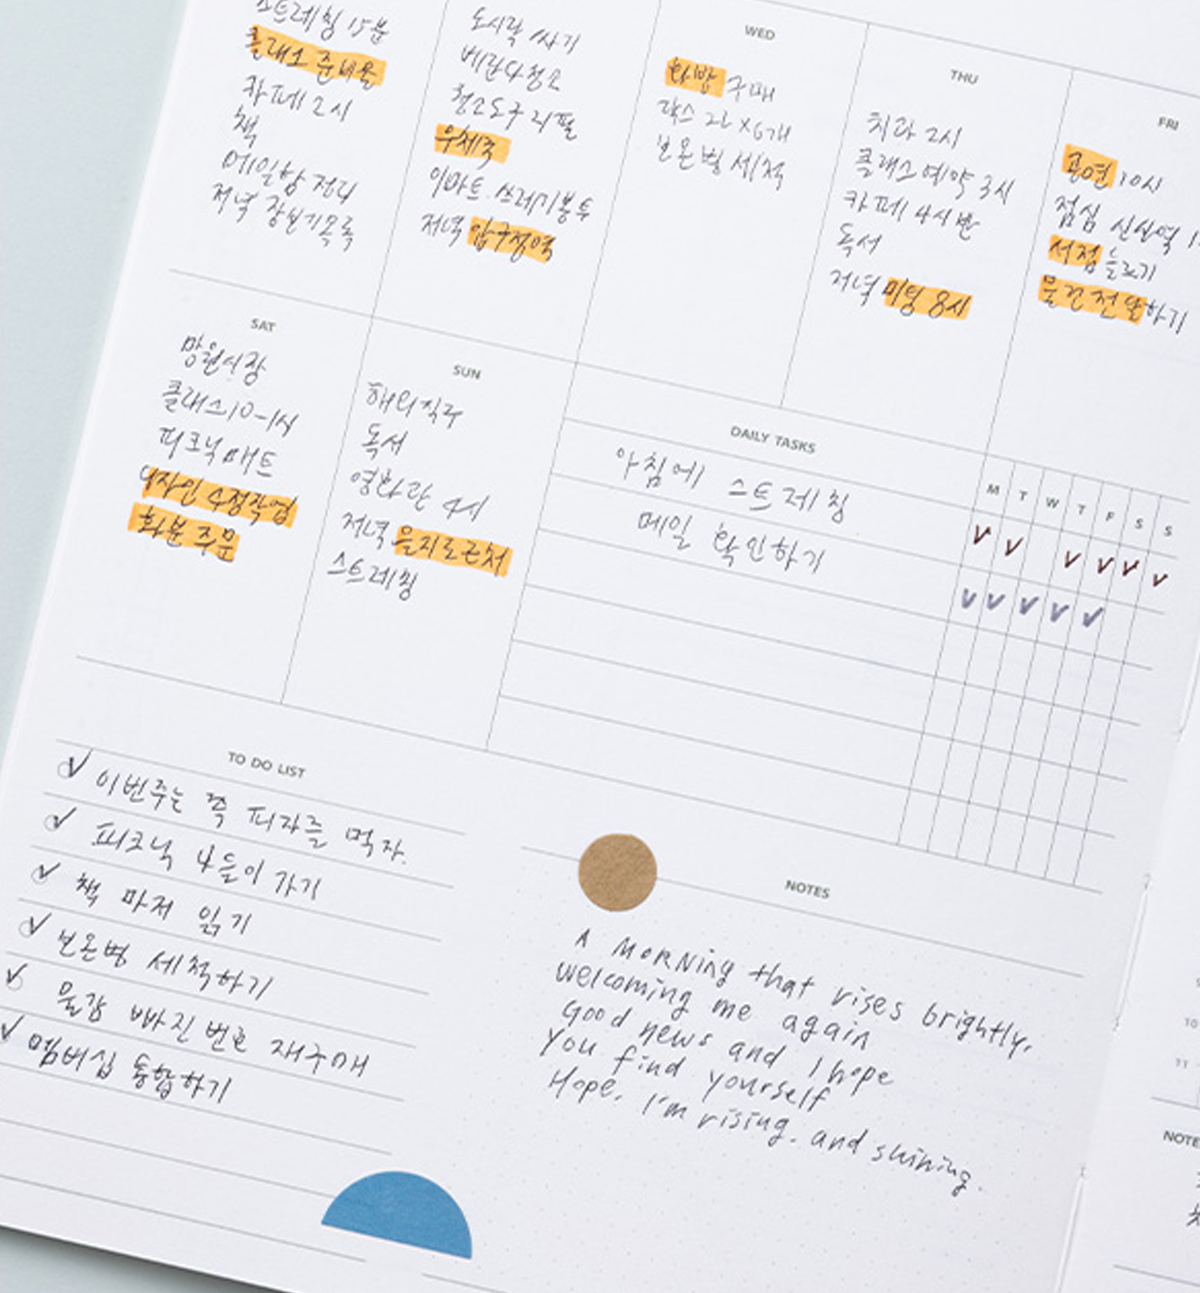 스트레칭 15분
클래스 준비물
카페 2시
책
메일함 정리
저녁 장보기목록
도시락 싸기
베란다청소
청소도구 리필
우체국
이마트. 쓰레기봉투
저녁 압구정역
WED
화방 구매
박스 22 x 6개
보온병 세척
THU
치과 2시
클래스예약 3시
카페 4시반
독서
저녁 미팅 8시
FRI
공연 10시
점심 신산역
서점 들르기
물건 전달하기
SAT
망원시장
클래스 10-1시
피크닉매트
디자인 수정작업
화분 주문
SUN
해외직구
독서
영화관 4시
저녁 을지로근처
스트레칭
DAILY TASKS
M T W T F S S
아침에 스트레칭
메일 확인하기
TO DO LIST
이번주는 꼭 피자를 먹자.
피크닉 나들이 가기
책 마저 읽기
보온병 세척하기
물감 빠진번호 재구매
멤버십 통합하기
NOTES
A MorNing that rises brightly.
welcoming me again
Good news and I hope
You find yourself
Hope. I'm rising. and shining.
10
11
NOTE